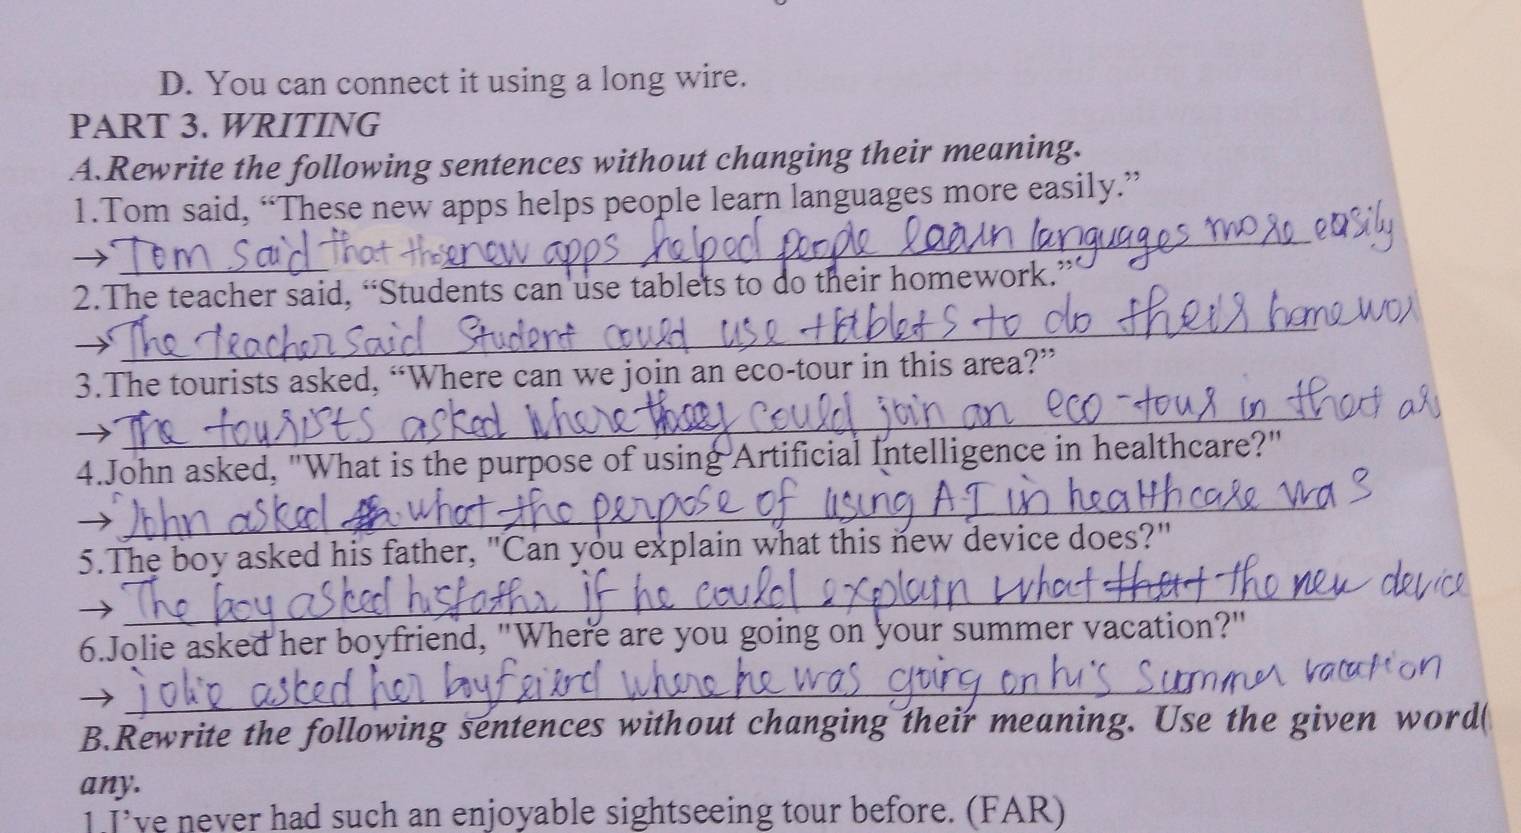 D. You can connect it using a long wire.
PART 3. WRITING
A.Rewrite the following sentences without changing their meaning.
1.Tom said, “These new apps helps people learn languages more easily.”
→ Tom said that those new apps helped people learn languages more easily
2.The teacher said, “Students can use tablets to do their homework.”
→ The teacher said Student could use tablets to do their homewor
3.The tourists asked, “Where can we join an eco-tour in this area?”
→ The tourists asked where they could join an eco-tour in that ar
4.John asked, "What is the purpose of using Artificial Intelligence in healthcare?"
→ John asked what the perpose of using A.I in healthcare was
5.The boy asked his father, "Can you explain what this new device does?"
→ The boy asked his father if he could explain what that the new device
6.Jolie asked her boyfriend, "Where are you going on your summer vacation?"
→ jolie asked her boyfeierd where he was going on his summer vacation
B.Rewrite the following sentences without changing their meaning. Use the given word(
any.
1.I’ve never had such an enjoyable sightseeing tour before. (FAR)